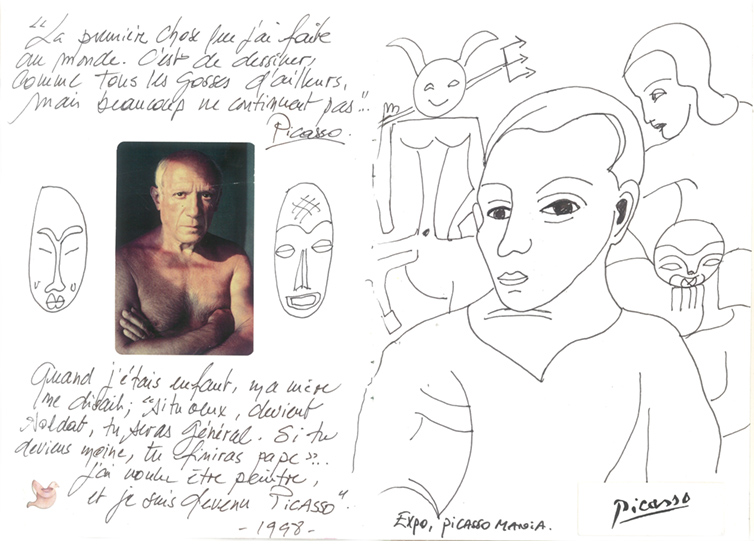 "La première chose que j'ai faite
au monde. C'est de dessiner,
comme tous les gosses d'ailleurs,
mais beaucoup ne continuent pas"...
Picasso.
Quand j'étais enfant, ma mère
me disait; "si tu veux, devient
soldat, tu seras général. Si tu
deviens moine, tu finiras pape"...
j'ai voulu être peintre,
et je suis devenu Picasso".
- 1998 -
Expo, PICASSO MANIA.
Picasso